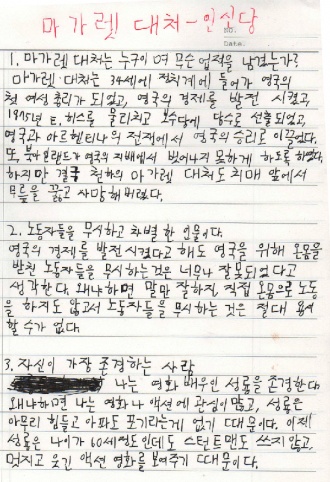 마가렛 대처-인식당
NO.
Date.
1. 마가렛 대처는 누구이며 무슨 업적을 남겼는가?
마가렛 대처는 34세에 정치계에 들어가 영국의
첫 여성 총리가 되었고, 영국의 경제를 발전 시켰고,
1975년 E.히스를 물리치고 보수당에 당수로 선출되었고,
영국과 아르헨티나의 전쟁에서 영국의 승리로 이끌었다.
또, 북아일랜드가 영국의 지배에서 벗어나지 못하게 도록 하였다.
하지만 결국 천하의 마가렛 대처도 치매 앞에서
무릎을 꿇고 사망해버렸다.
2. 노동자들을 무시하고 차별 한 인물이다.
영국의 경제를 발전시켰다고 해도 영국을 위해 온몸을
받친 노동자들을 무시하는 것은 너무나 잘못되었다고
생각한다. 왜냐하면 말만 잘하진, 직접 온몸으로 노동
을 하지도 않고서 노동자들을 무시하는 것은 절대 용서
할 수가 없다.
3. 자신이 가장 존경하는 사람
나는 영화 배우인 성룡을 존경한다.
왜냐하면 나는 영화나 액션에 관심이 많고, 성룡은
아무리 힘들고 아파도 포기라는게 없기 때문이다. 이제
성룡은 나이가 60세정도인데도 스턴트맨도 쓰지 않고,
멋지고 웃긴 액션 영화를 보여주기 때문이다.